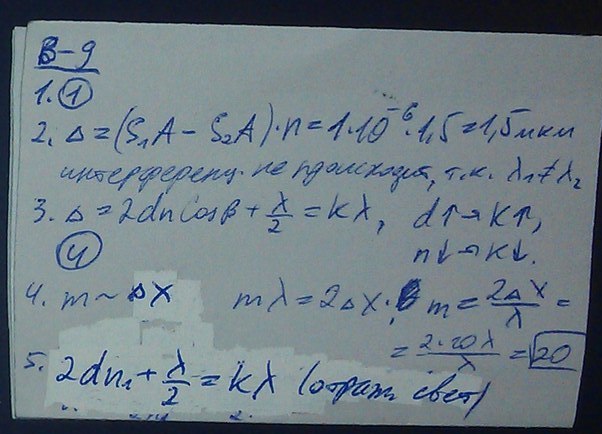 В-9
1. ①
2. Δ = (S₁A − S₂A)·n = 1·10⁻⁶·1,5 = 1,5 мкм
интерференц. не происходит, т.к. λ₁ ≠ λ₂
3. Δ = 2dn cosβ + λ/2 = kλ, d↑ → k↑,
④ n↓ → k↓.
4. m ~ Δx mλ = 2Δx· m = 2Δx/λ =
= 2·10λ/λ = 20
5. 2dn₁ + λ/2 = kλ (отраж. свет)